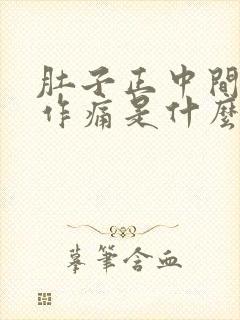 肚子正中間
作痛是什麼
摹筆含血